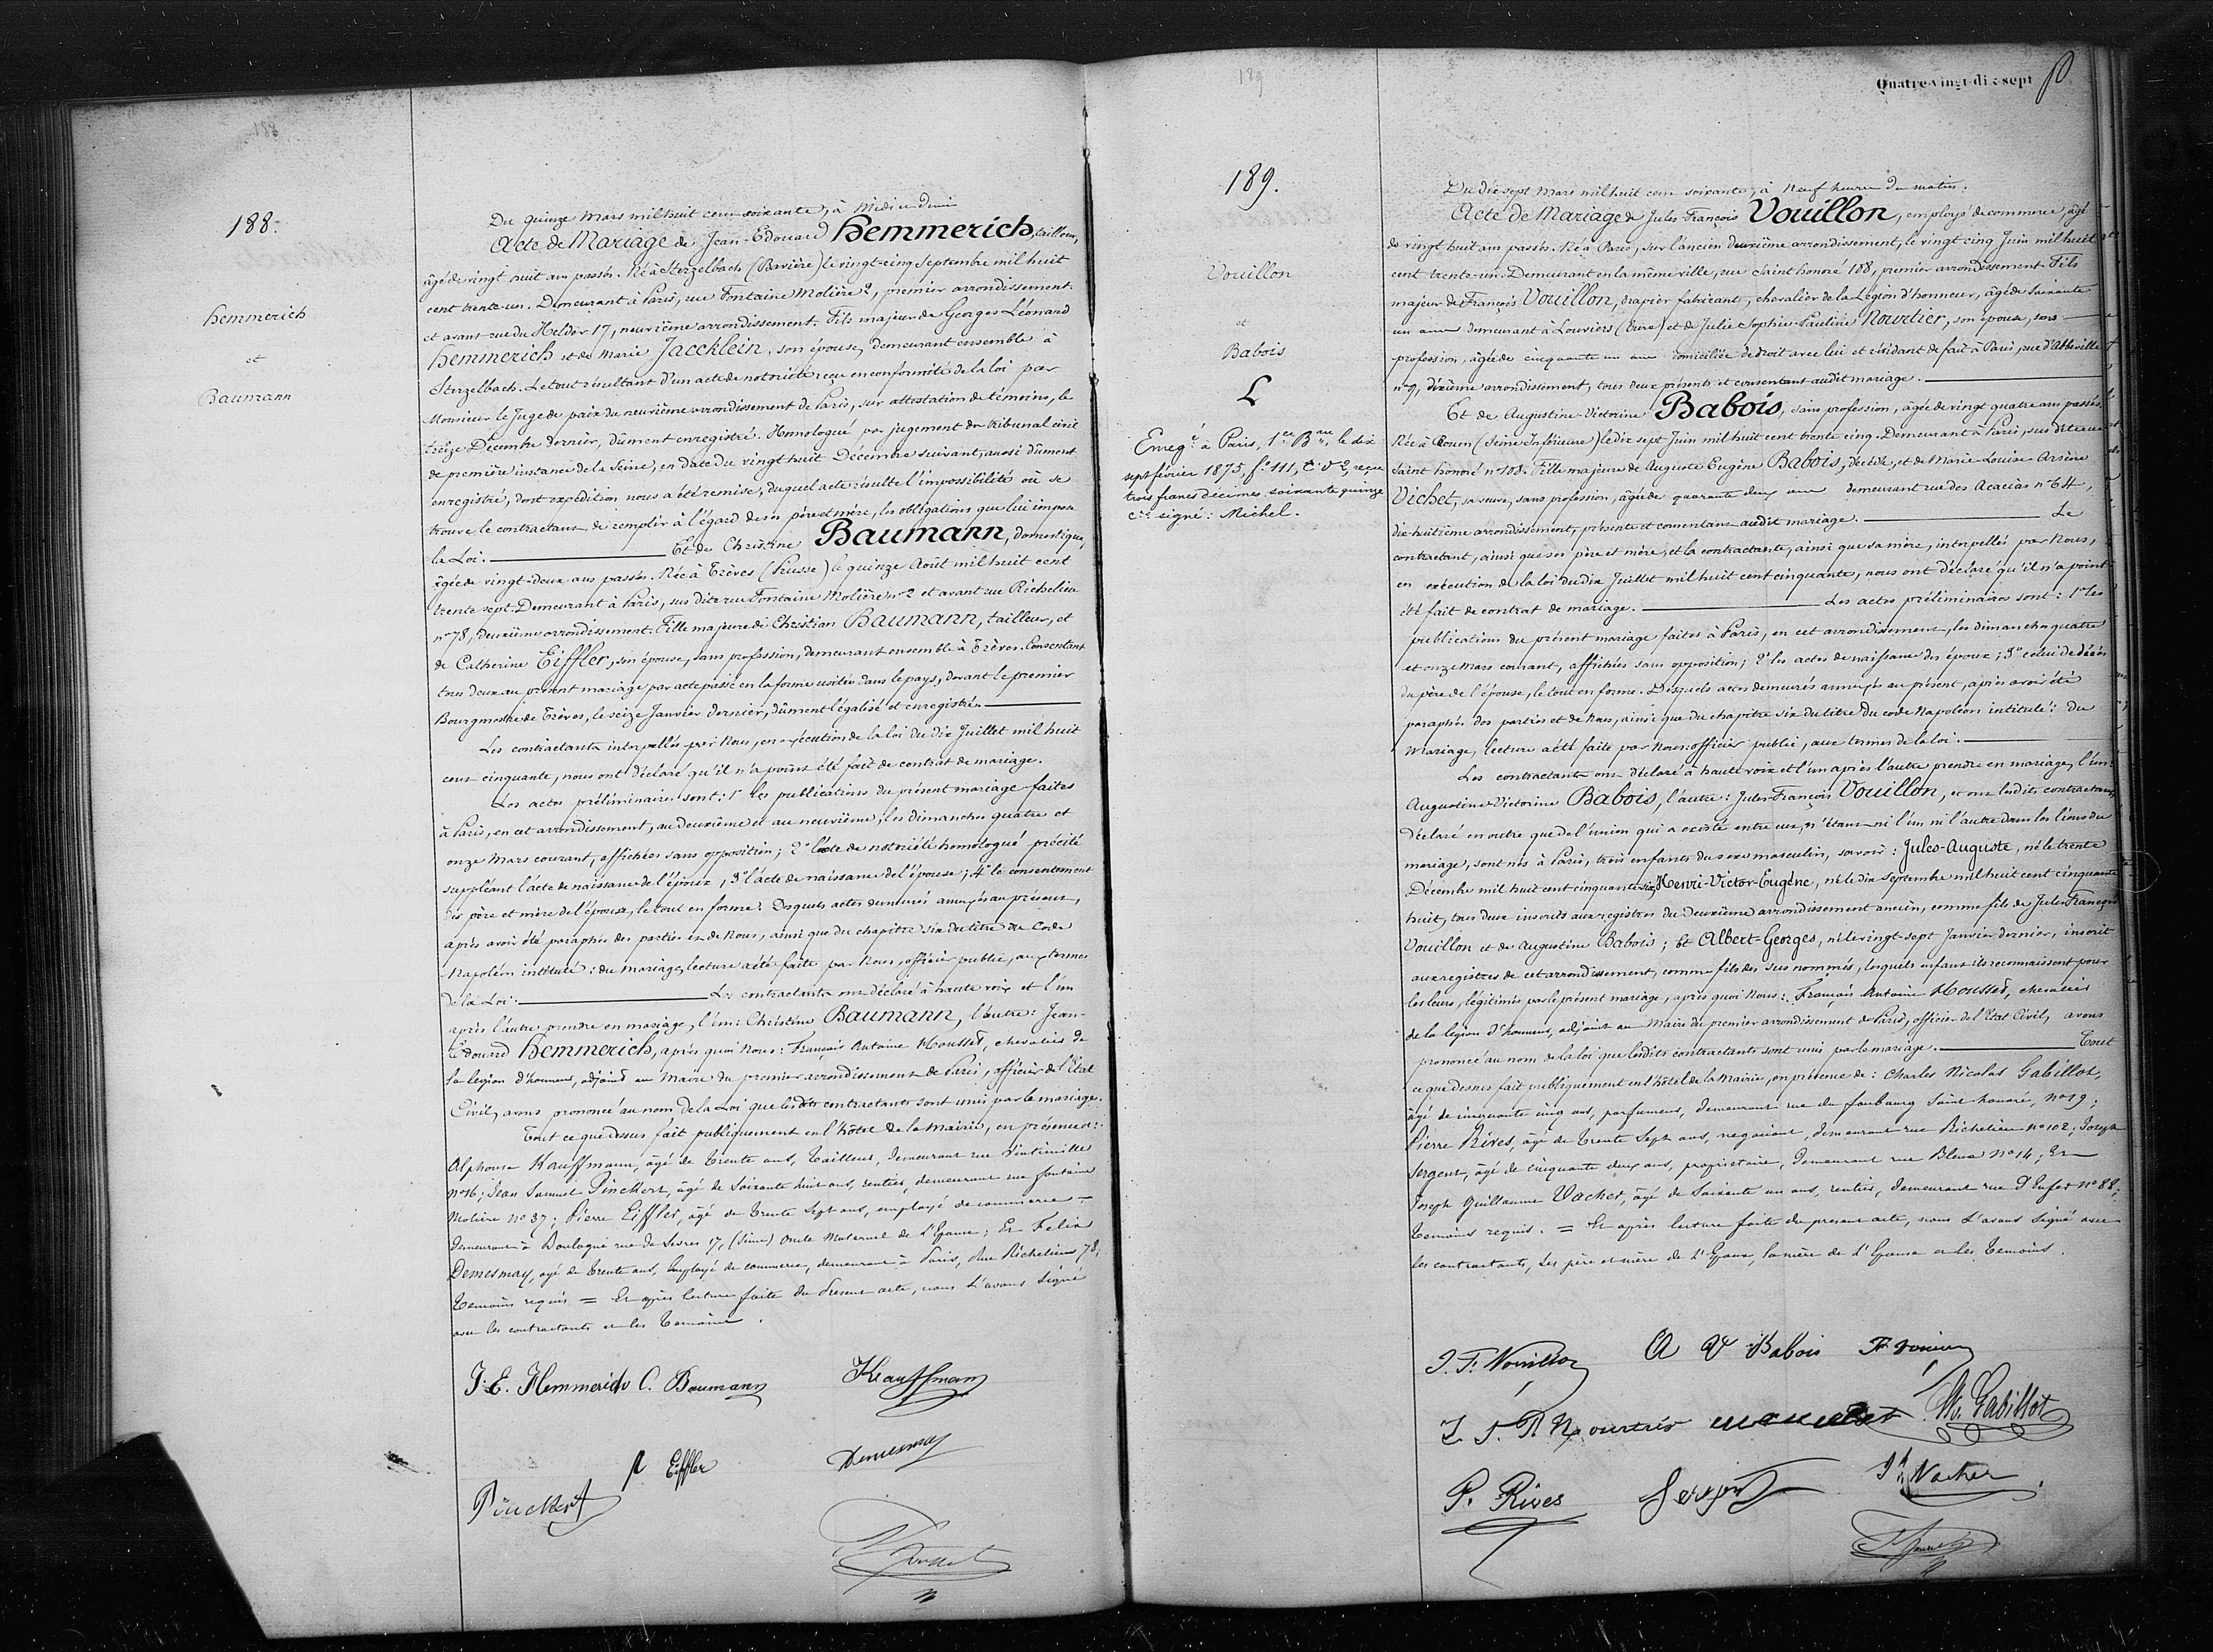 188
188.
Hemmerich
et
Baumann
Du quinze Mars mil huit cent soixante, à Midi et demi
Acte de Mariage de Jean-Edouard Hemmerich, tailleur,
âgé de vingt huit ans passés. Né à Sterzelbach (Bavière) le vingt-cinq Septembre mil huit
cent trente-un. Demeurant à Paris, rue Fontaine Molière 2, premier arrondissement
et avant rue du Helder 17, neuvième arrondissement. Fils majeur de Georges Léonard
Hemmerich et de Marie Jaecklein, son épouse, demeurant ensemble à
Sterzelbach. Le tout résultant d'un acte de notoriété reçu en conformité de la loi par
Monsieur le Juge de paix du neuvième arrondissement de Paris, sur attestation de témoins, le
treize Décembre dernier, dûment enregistré. Homologué par jugement du tribunal civil
de première instance de la Seine, en date du vingt huit Décembre suivant, aussi dûment
enregistré, dont expédition nous a été remise, duquel acte résulte l'impossibilité où se
trouve le contractant de remplir à l'égard de ses père et mère, les obligations que lui impose
la Loi. Et de Christine Baumann, domestique,
âgée de vingt-deux ans passés. Née à Trèves (Prusse) le quinze Août mil huit cent
trente sept. Demeurant à Paris, sus dite rue Fontaine Molière n° 2 et avant rue Richelieu
n° 78, deuxième arrondissement. Fille majeure de Christian Baumann, tailleur, et
de Catherine Eiffler, son épouse, sans profession, demeurant ensemble à Trèves. Consentant
tous deux au présent mariage par acte passé en la forme usitée dans le pays, devant le premier
Bourgmestre de Trèves, le seize Janvier dernier, dûment légalisé et enregistré.
Les contractants interpellés par Nous, en exécution de la loi du dix Juillet mil huit
cent cinquante, nous ont déclaré qu'il n'a point été fait de contrat de mariage.
Les actes préliminaires sont : 1° les publications du présent mariage faites
à Paris, en cet arrondissement, au deuxième et au neuvième, les dimanches quatre et
onze Mars courant, affichées sans opposition ; 2° l'acte de notoriété homologué précité
suppléant l'acte de naissance de l'époux ; 3° l'acte de naissance de l'épouse ; 4° le consentement
des père et mère de l'épouse, le tout en forme. Desquels actes demeurés annexés au présent,
après avoir été paraphés des parties et de Nous, ainsi que du chapitre six du titre du Code
Napoléon intitulé : du Mariage, lecture a été faite par Nous, officier public, aux termes
de la Loi. Les contractants ont déclaré à haute voix et l'un
après l'autre prendre en mariage, l'un : Christine Baumann, l'autre : Jean-
Edouard Hemmerich, après quoi Nous : François Antoine Housset, chevalier de
la légion d'honneur, adjoint au Maire du premier arrondissement de Paris, officier de l'Etat
Civil, avons prononcé au nom de la Loi que lesdits contractants sont unis par le mariage.
Tout ce que dessus fait publiquement en l'hôtel de la Mairie, en présence de :
Alphonse Kauffmann, âgé de trente ans, tailleur, demeurant rue Tintiniville
n° 16 ; Jean Samuel Pinckert, âgé de soixante huit ans, rentier, demeurant rue fontaine
Molière n° 37 ; Pierre Eiffler, âgé de trente sept ans, employé de commerce
demeurant à Boulogne rue de Sèvres 17, (Seine) oncle maternel de l'Epouse ; Et Felix
Demesmay, agé de trente ans, employé de commerce, demeurant à Paris, Rue Richelieu 78 ;
temoins requis = Et après lecture faite du Present acte, nous l'avons signé
avec les contractants et les temoins.
J. E. Hemmerich C. Baumann Kauffmann
P Eiffler Demesmay
Pinckert
Housset
189
Quatre-vingt-dix-sept
189.
Vouillon
et
Babois
L
Enregé à Paris, 1er Bau, le dix
sept février 1875, f° 111, C. V° 2, reçu
trois francs décimes soixante quinze
ces signé : Michel.
Du dix sept Mars mil huit cent soixante, à Neuf heures du matin.
Acte de Mariage de Jules-François Vouillon, employé de commerce, âgé
de vingt huit ans passés. Né à Paris, sur l'ancien deuxième arrondissement, le vingt cinq Juin mil huit
cent trente-un. Demeurant en la même ville, rue Saint honoré 108, premier arrondissement. Fils
majeur de François Vouillon, drapier fabricant, chevalier de la Légion d'honneur, âgé de soixante
un ans demeurant à Louviers (Eure) et de Julie Sophie Pauline Nourtier, son épouse, sans
profession, âgée de cinquante un ans domiciliée de droit avec lui et résidant de fait à Paris, rue d'Abbeville
n° 9, dixième arrondissement, tous deux présents et consentant audit mariage.
Et de Augustine-Victorine Babois, sans profession, âgée de vingt quatre ans passés.
Née à Rouen (Seine Inférieure) le dix sept Juin mil huit cent trente cinq. Demeurant à Paris, sus dite rue
Saint honoré n° 108. Fille majeure de Auguste Eugène Babois, décédé, et de Marie-Louise-Arsène
Vichet, sa veuve, sans profession, âgée de quarante deux ans demeurant rue des Acacias n° 64,
dix-huitième arrondissement, présente et consentant audit mariage. Le
contractant, ainsi que ses père et mère, et la contractante, ainsi que sa mère, interpellés par Nous,
en exécution de la loi du dix Juillet mil huit cent cinquante, nous ont déclaré qu'il n'a point
été fait de contrat de mariage. Les actes préliminaires sont : 1° les
publications du présent mariage faites à Paris, en cet arrondissement, les dimanches quatre
et onze Mars courant, affichées sans opposition ; 2° les actes de naissance des époux ; 3° celui de décès
du père de l'épouse, le tout en forme. Desquels actes demeurés annexés au présent, après avoir été
paraphés des parties et de Nous, ainsi que du chapitre six du titre du code Napoléon intitulé : du
Mariage, lecture a été faite par Nous officier public, aux termes de la loi.
Les contractants ont déclaré à haute voix et l'un après l'autre prendre en mariage, l'un :
Augustine-Victorine Babois, l'autre : Jules-François Vouillon, et ont lesdits contractants
déclaré en outre que de l'union qui a existé entre eux, n'étant ni l'un ni l'autre dans les liens du
mariage, sont nés à Paris, trois enfants du sexe masculin, savoir : Jules-Auguste, né le trente
Décembre mil huit cent cinquante six, Henri-Victor-Eugène, né le dix Septembre mil huit cent cinquante
huit, tous deux inscrits aux registres du deuxième arrondissement ancien, comme fils de Jules-François
Vouillon et de Augustine Babois ; Et Albert-Georges, né le vingt-sept Janvier dernier, inscrit
aux registres de cet arrondissement, comme fils des sus nommés, lesquels enfants ils reconnaissent pour
les leurs, légitimés par le présent mariage, après quoi Nous : François Antoine Housset, chevalier
de la légion d'honneur, adjoint au Maire du premier arrondissement de Paris, officier de l'Etat Civil, avons
prononcé au nom de la loi que lesdits contractants sont unis par le mariage. Tout
ce que dessus fait publiquement en l'hôtel de la Mairie, en présence de : Charles Nicolas Gabillot,
âgé de cinquante cinq ans, parfumeur, demeurant rue du faubourg Saint honoré, n° 19 ;
Pierre Rives, âgé de trente sept ans, negociant, demeurant rue Richelieu n° 102 ; Joseph
Sergent, âgé de cinquante deux ans, propriétaire, demeurant rue Bleue n° 14 ; Et
Joseph Guillaume Vacher, âgé de soixante un ans, rentier, demeurant rue d'Enfer n° 88 ;
temoins requis. = Et après lecture faite du present acte, nous l'avons signé avec
les contractants, les père et mère de l'Epoux, la mère de l'Epouse et les temoins.
J. F. Vouillon A V Babois
J. S. P. Nourtier Gabillot
P. Rives Sergent J. G. Vacher
Housset